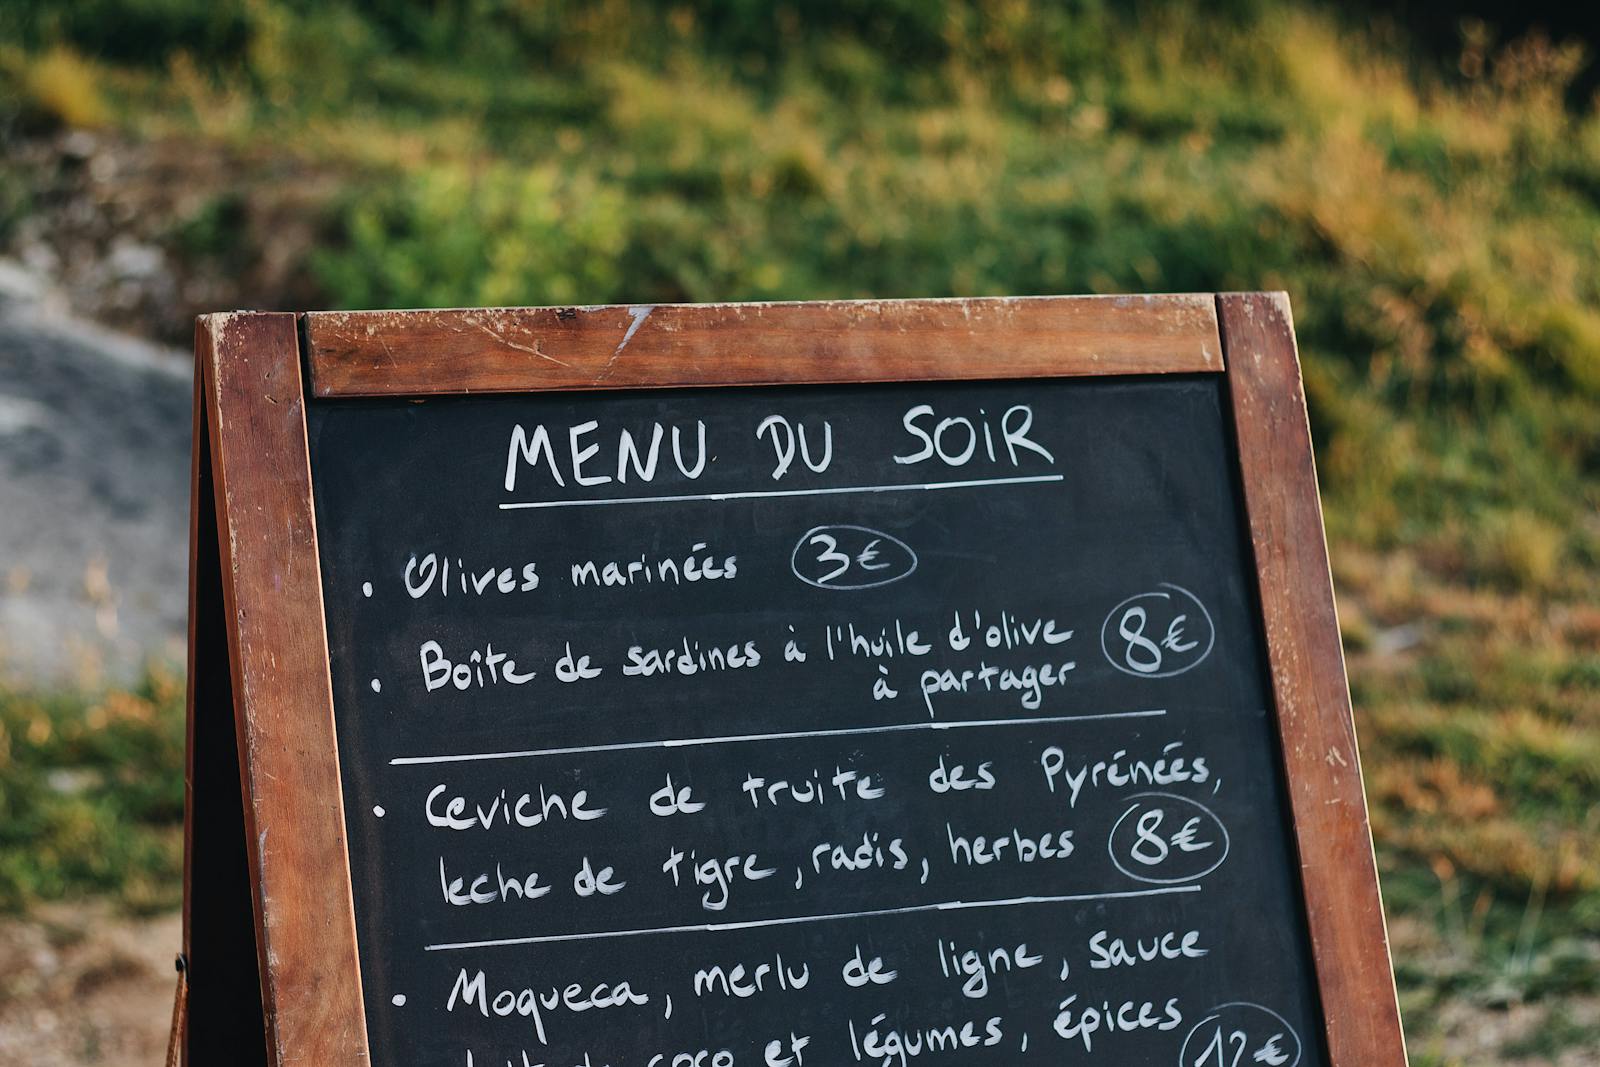 MENU DU SOIR
• Olives marinées 3€
• Boîte de sardines à l'huile d'olive 8€
à partager
• Ceviche de truite des Pyrénées,
leche de tigre, radis, herbes 8€
• Moqueca, merlu de ligne, sauce
coco et légumes, épices 12€